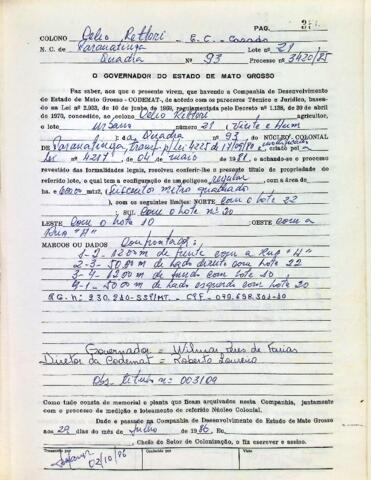 PAG. 35
COLONO Celio Rettori - E. C. Casado
N. C. de Paranatinga Lote nº 21
Quadra Nº 93 Processo nº 3420/85
O GOVERNADOR DO ESTADO DE MATO GROSSO
Faz saber, aos que o presente virem, que havendo a Companhia de Desenvolvimento
do Estado de Mato Grosso - CODEMAT-, de acordo com os pareceres Técnico e Jurídico, basea-
da na Lei nº 2.033, de 10 de junho de 1939, regulamentada pelo Decreto Nº 1.138, de 20 de abril
de 1970, concedido, ao colono Celio Rettori , agricultor,
o lote Urbano número 21 (Vinte e Hum
) da Quadra Nº 93 do NÚCLEO COLONIAL
de Paranatinga, Transf. p/ Lei 4225 de criado pela
Lei nº 4287, de 04 de maio de 1981. e achando-se o processo
revestido das formalidades legais, resolveu conferir-lhe o presente título de propriedade do
referido lote, o qual tem a configuração de um polígono regular , com a área de
ha. 600,00 mts2, Seiscentos metro quadrado
), com os seguintes limites: NORTE com o lote 22
; SUL com o lote nº 20
LESTE com o lote 10 ; OESTE com a
Rua "H"
MARCOS OU DADOS Confrontação:
1-2- 12,00 m de frente com a Rua "H"
2-3- 50,00 m de lado direito com lote 22
3-4- 12,00 m de fundo com lote 10
4-1- 50,00 m de lado esquerdo com lote 20
R.G. nº: 230.210-SSP/MT. - CPF-
Governador = Wilmar Peres de Farias
Diretor da Codemat = Roberto Loureiro
Obs. título nº: 003109
Como tudo consta do memorial e planta que ficam arquivados nesta Companhia, juntamente
com o processo de medição e loteamento do referido Núcleo Colonial.
Dado e passado na Companhia de Desenvolvimento do Estado de Mato Grosso
aos 29 dias do mês de Julho de 1986, Eu,
, Chefe do Setor de Colonização, o fiz escrever e assino.
Transcrito por Conferido Visto
02/10/86